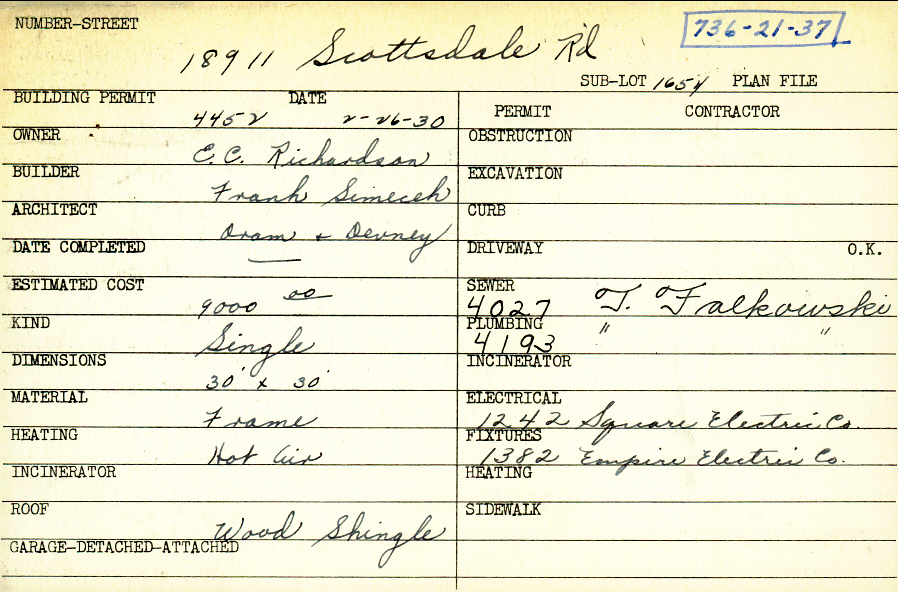 NUMBER-STREET
18911 Scottsdale Rd
736-21-37
SUB-LOT 1654 PLAN FILE
BUILDING PERMIT DATE
4452 2-26-30
OWNER
E.C. Richardson
BUILDER
Frank Simecek
ARCHITECT
Oram & Devney
DATE COMPLETED
—
ESTIMATED COST
9000 00
KIND
Single
DIMENSIONS
30' x 30'
MATERIAL
Frame
HEATING
Hot Air
INCINERATOR
ROOF
Wood Shingle
GARAGE-DETACHED-ATTACHED
PERMIT CONTRACTOR
OBSTRUCTION
EXCAVATION
CURB
DRIVEWAY O.K.
SEWER
4027 T. Falkowski
PLUMBING
4193 " "
INCINERATOR
ELECTRICAL
1242 Square Electric Co.
FIXTURES
1382 Empire Electric Co.
HEATING
SIDEWALK